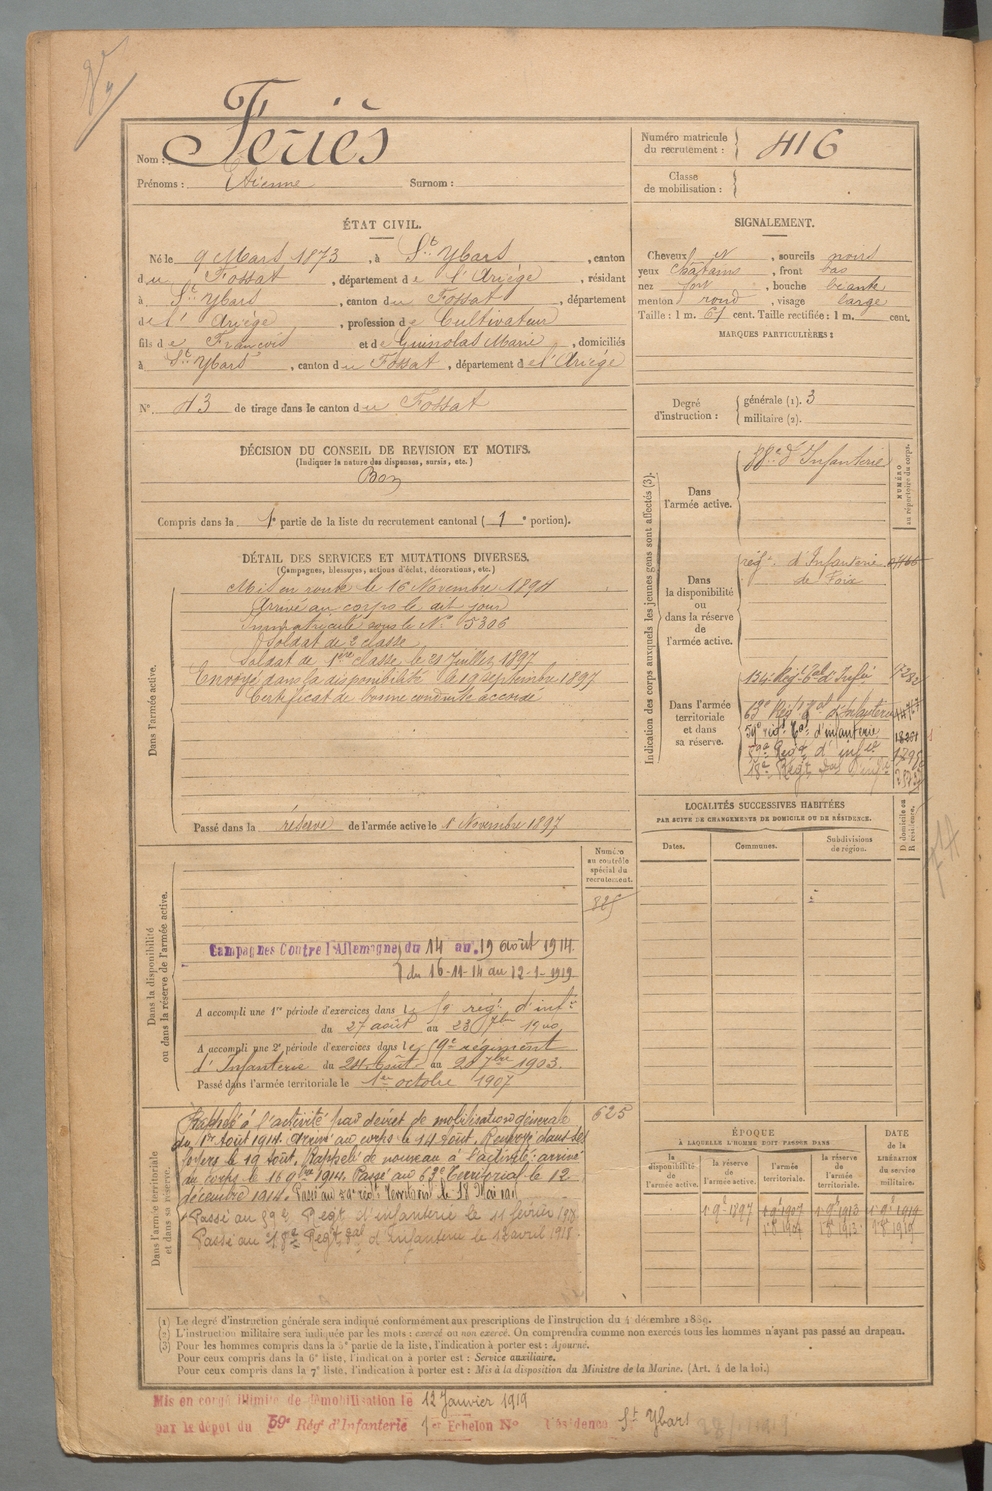 Nom : Feriès
Prénoms : Etienne Surnom :
Numéro matricule du recrutement : 416
Classe de mobilisation :
ÉTAT CIVIL.
Né le 9 Mars 1873, à St Ybars, canton
du Fossat, département de l'Ariège, résidant
à St Ybars, canton du Fossat, département
de l'Ariège, profession de Cultivateur
fils de François et de Guinolas Marie, domiciliés
à St Ybars, canton du Fossat, département de l'Ariège
N° 43 de tirage dans le canton du Fossat
SIGNALEMENT.
Cheveux N, sourcils noirs
yeux chatains, front bas
nez fort, bouche béante
menton rond, visage large
Taille : 1 m. 61 cent. Taille rectifiée : 1 m. cent.
MARQUES PARTICULIÈRES :
Degré d'instruction : générale (1). 3
militaire (2).
DÉCISION DU CONSEIL DE REVISION ET MOTIFS.
(Indiquer la nature des dispenses, sursis, etc.)
Bon
Compris dans la 1e partie de la liste du recrutement cantonal (1e portion).
DÉTAIL DES SERVICES ET MUTATIONS DIVERSES.
(Campagnes, blessures, actions d'éclat, décorations, etc.)
Dans l'armée active.
Mis en route le 16 Novembre 1894
Arrivé au corps le dit jour
Immatriculé sous le N° 5306
Soldat de 2e classe
Soldat de 1ère classe le 21 Juillet 1897
Envoyé dans la disponibilité le 19 septembre 1897
Certificat de bonne conduite accordé
Passé dans la réserve de l'armée active le 1 Novembre 1897
Indication des corps auxquels les jeunes gens sont affectés (3).
NUMÉRO au répertoire du corps.
Dans l'armée active.
88e d'Infanterie
Dans la disponibilité ou dans la réserve de l'armée active.
régt d'Infanterie
de Foix
Dans l'armée territoriale et dans sa réserve.
134e Rég. Tal d'Infie
63e Régt Tal d'Infanterie
59e régt Tal d'infanterie
59e Régt d'infie
18e Régt Tal d'Infie
LOCALITÉS SUCCESSIVES HABITÉES
PAR SUITE DE CHANGEMENTS DE DOMICILE OU DE RÉSIDENCE.
Dates. Communes. Subdivisions de région. D domicile ou R résidence.
Numéro au contrôle spécial du recrutement.
825
Dans la disponibilité ou dans la réserve de l'armée active.
Campagnes Contre l'Allemagne du 14 au 19 août 1914.
du 16-11-14 au 12-1-1919
A accompli une 1re période d'exercices dans le 59 rég. d'inf.
du 27 août au 23 7bre 1900
A accompli une 2e période d'exercices dans le 59e régiment
d'Infanterie du 24 Août au 20 7bre 1903.
Passé dans l'armée territoriale le 1er octobre 1907
Dans l'armée territoriale et dans sa réserve.
625
Rappelé à l'activité par décret de mobilisation générale
du 1er Août 1914. Arrivé au corps le 14 août. Renvoyé dans ses
foyers le 19 Août. Rappelé de nouveau à l'activité : arrivé
au corps le 16 9bre 1914. Passé au 63e Territorial le 12
décembre 1914. Passé au 59e régt Territorial le 18 Mai
Passé au 59e Regt d'infanterie le 11 février 1918
Passé au 18e Régt Tal d'Infanterie le 12 avril 1918.
ÉPOQUE
A LAQUELLE L'HOMME DOIT PASSER DANS
DATE de la LIBÉRATION du service militaire.
la disponibilité de l'armée active. la réserve de l'armée active. l'armée territoriale. la réserve de l'armée territoriale.
1 9 1897 1 9 1907 1 9 1913 1 9 1919
1 8 1907 1 8 1913 1 8 1919
(1) Le degré d'instruction générale sera indiqué conformément aux prescriptions de l'instruction du 4 décembre 1889.
(2) L'instruction militaire sera indiquée par les mots : exercé ou non exercé. On comprendra comme non exercés tous les hommes n'ayant pas passé au drapeau.
(3) Pour les hommes compris dans la 5e partie de la liste, l'indication à porter est : Ajourné.
Pour ceux compris dans la 6e liste, l'indication à porter est : Service auxiliaire.
Pour ceux compris dans la 7e liste, l'indication à porter est : Mis à la disposition du Ministre de la Marine. (Art. 4 de la loi.)
Mis en congé illimité de démobilisation le 12 Janvier 1919
par le dépôt du 59e Régt d'Infanterie 1er Echelon N° résidence St Ybars